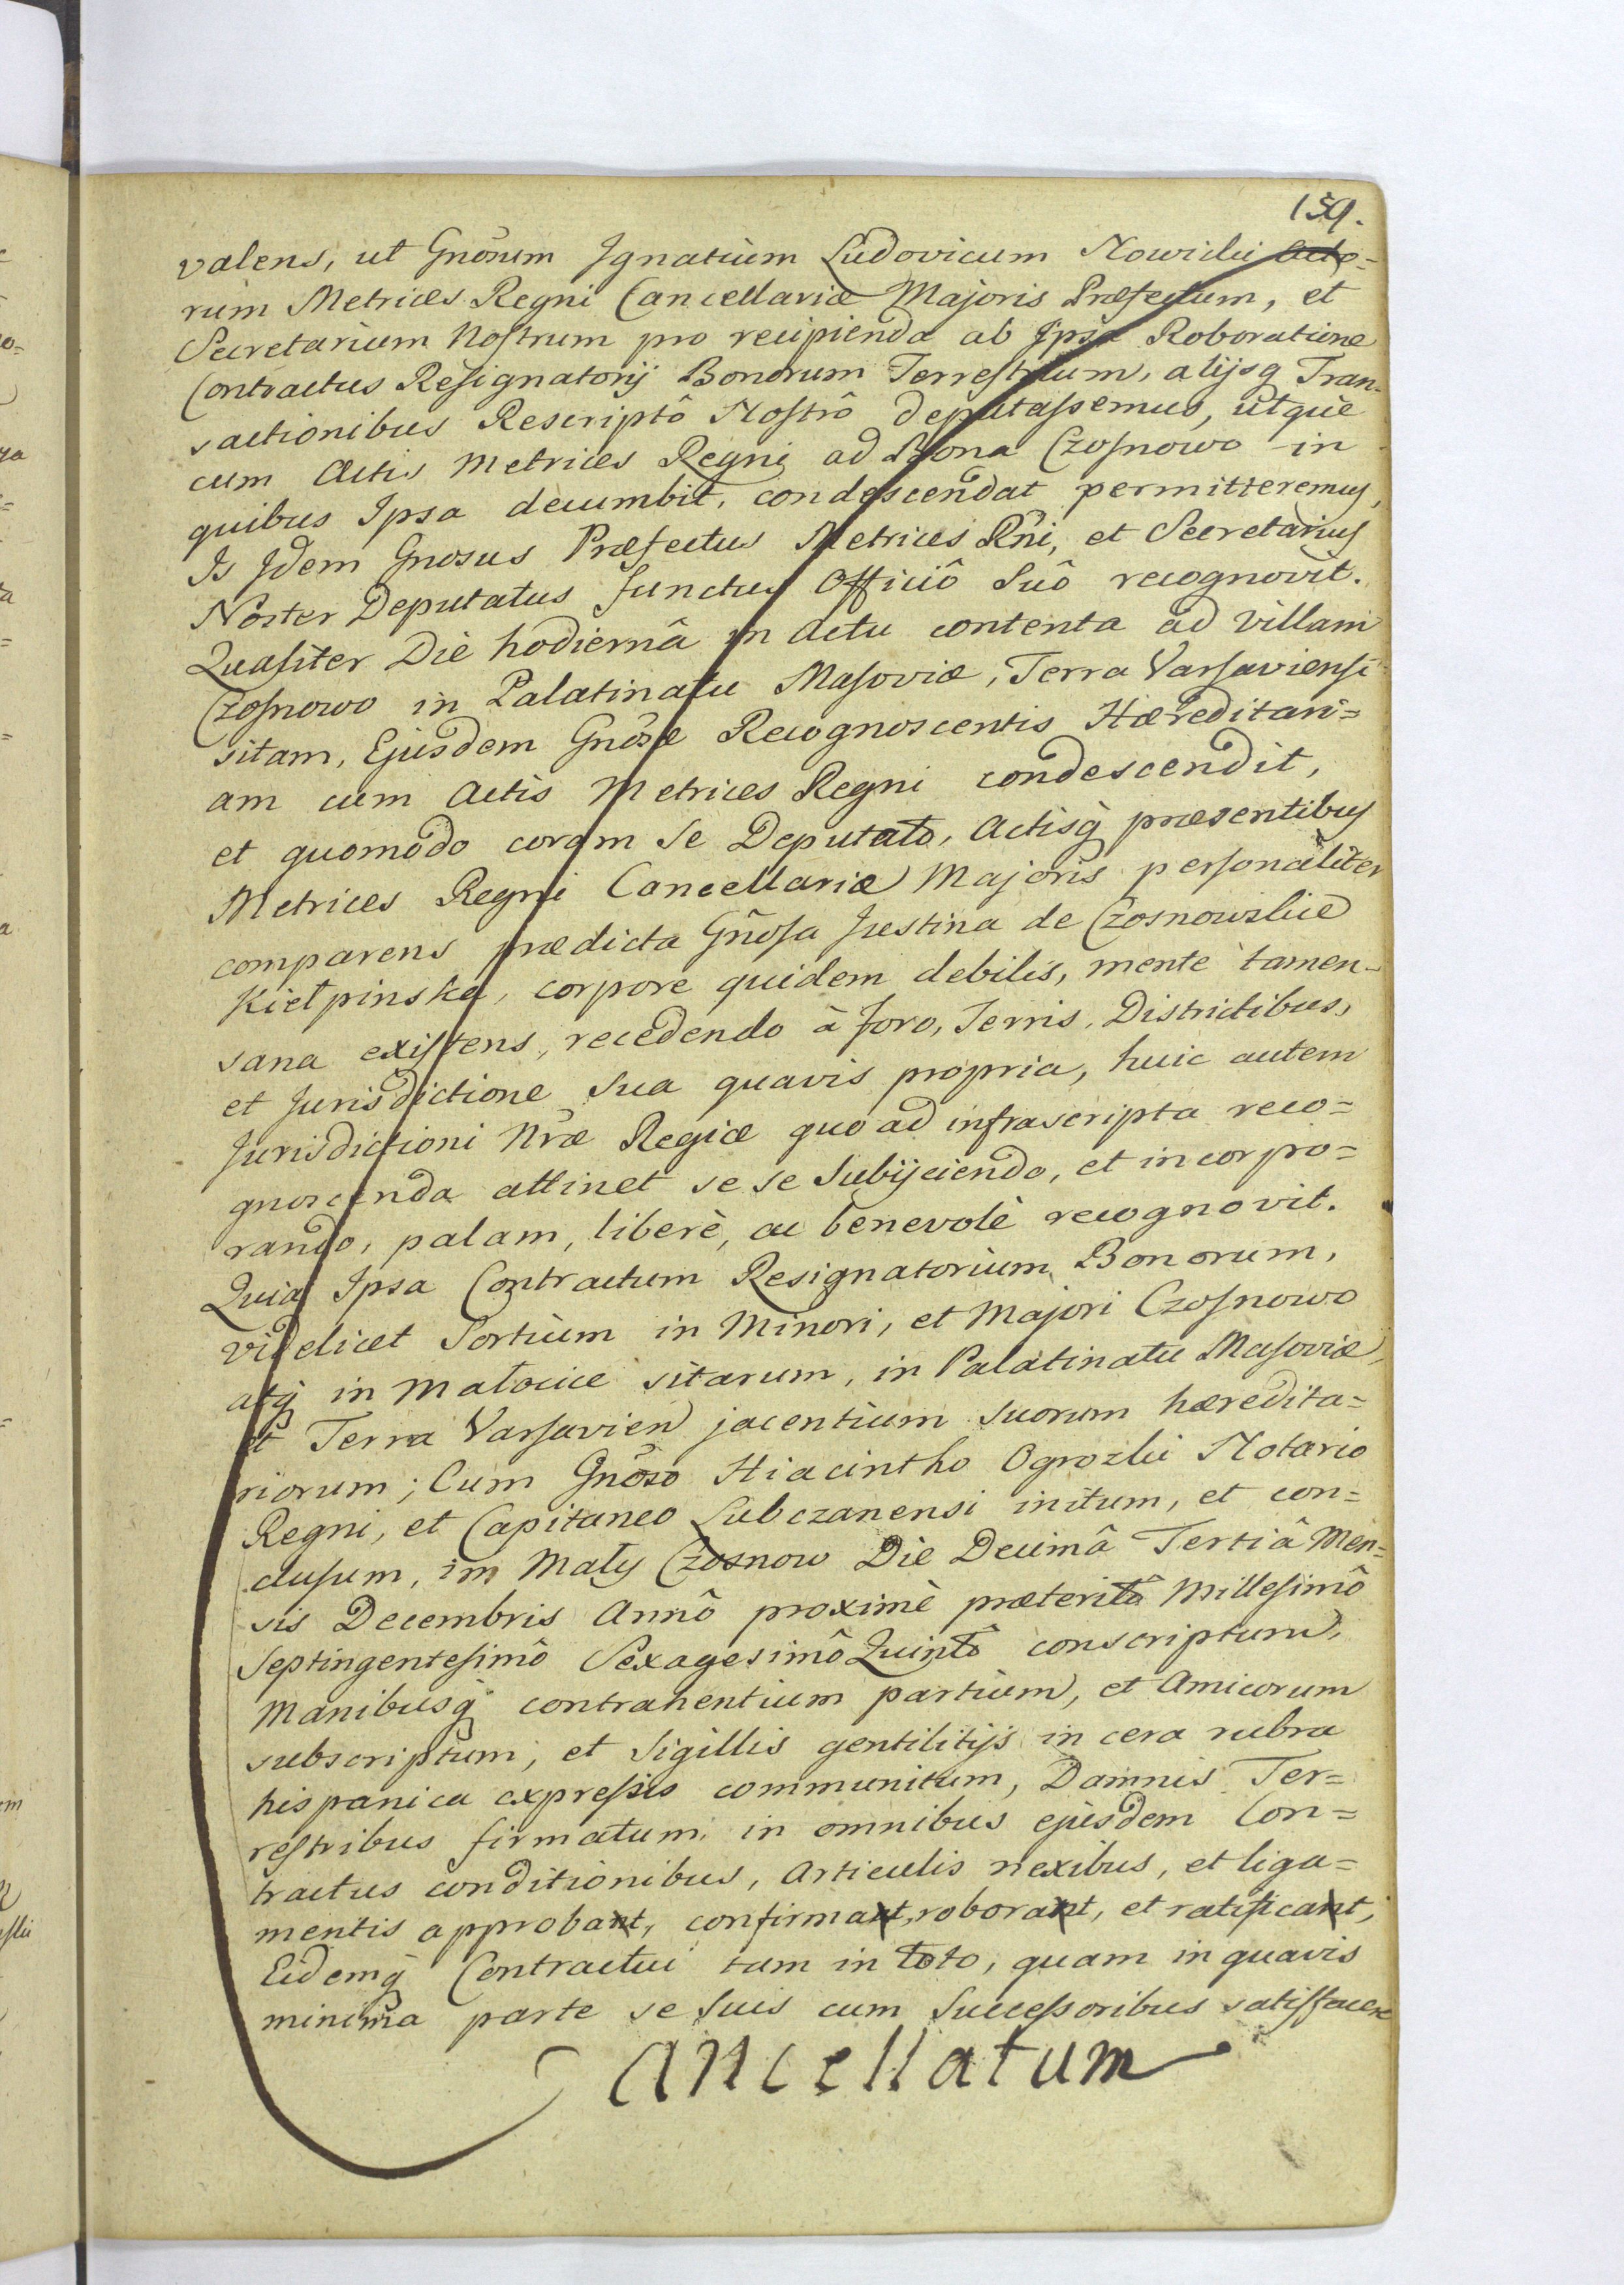 159.
valens, ut Gnôsum Ignatium Ludovicum Nowicki Acto=
rum Metrices Regni Cancellariæ Majoris Præfectum, et
Secretarium Nostrum pro recipienda ab Ipsa Roboratione
Contractus Resignatorij Bonorum Terrestrium, alijsq Tran=
sactionibus Rescriptô Nostrô deputassemus, utque
cum Actis Metrices Regni ad Bona Czosnowo in
quibus Ipsa decumbit, condescendat permitteremus,
Is Idem Gnosus Præfectus Metrices Rñi, et Secretarius
Noster Deputatus functus Officiô Suô recognovit.
Qualiter Die hodiernâ in Actu contenta ad Villam
Czosnowo in Palatinatu Masoviæ, Terra Varsaviensi
sitam, Ejusdem Gnôsæ Recognoscentis Hæreditari=
am cum Actis Metrices Regni condescendit,
et quomodo coram se Deputato, Actisq̀ præsentibus
Metrices Regni Cancellariæ Majoris personaliter
comparens prædicta Gñosa Justina de Czosnowskie
Kiełpinska, corpore quidem debilis, mente tamen
sana existens, recedendo à foro, Terris, Districtibus,
et Jurisdictione Sua quavis propria, huic autem
Jurisdictioni Nræ Regiæ quo ad infrascripta reco=
gnoscenda attinet se se Subijciendo, et incorpo=
rando, palam, liberè, ac benevolè recognovit.
Quia Ipsa Contractum Resignatorium Bonorum,
videlicet Sortium in Minori, et Majori Czosnowo
atq̀ in Małocice sitarum, in Palatinatu Masoviæ,
et Terra Varsavien jacentium suorum hæredita=
riorum; Cum Gnôso Hiacintho Ogrozki Notario
Regni, et Capitaneo Lubczanensi initum, et con=
clusum, im Mały Czosnow Die Decimâ Tertiâ Men=
sis Decembris Annô proximè præteritô Millesimô
Septingentesimô Sexagesimô Quintô conscriptum,
Manibusq̀ contrahentium partium, et Amicorum
subscriptum, et Sigillis gentilitijs in cera rubra
hispanica expressis communitum, Damnis Ter=
restribus firmatum, in omnibus ejusdem Con=
tractus conditionibus, Articulis nexibus, et liga=
mentis approbant, confirmant, roborant, et ratificant,
Eidemq̀ Contractui tam in toto, quam in quavis
minima parte se suis cum Successoribus satisfacere
Cancellatum